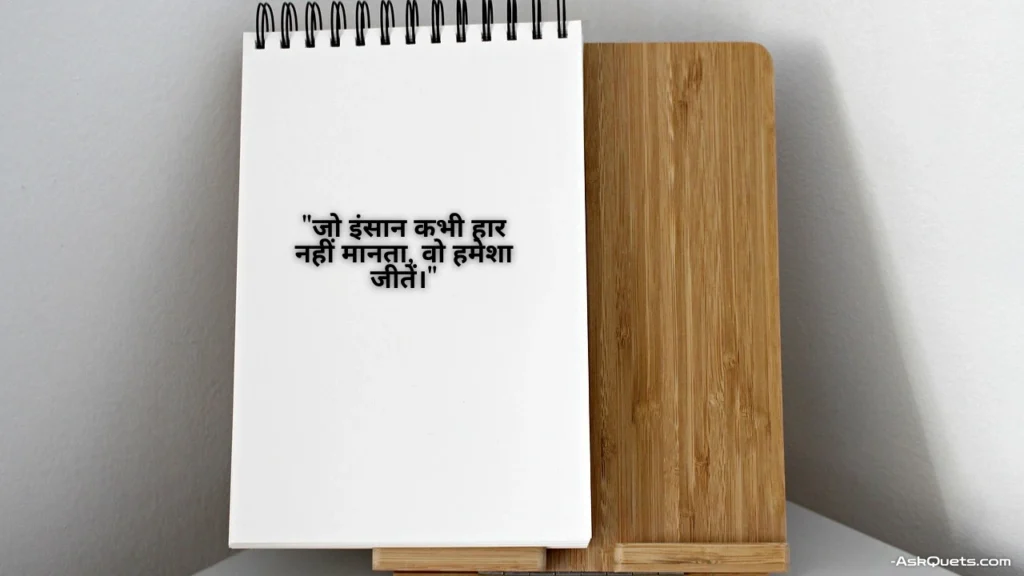 "जो इंसान कभी हार
नहीं मानता, वो हमेशा
जीतें।"
-AskQuets.com